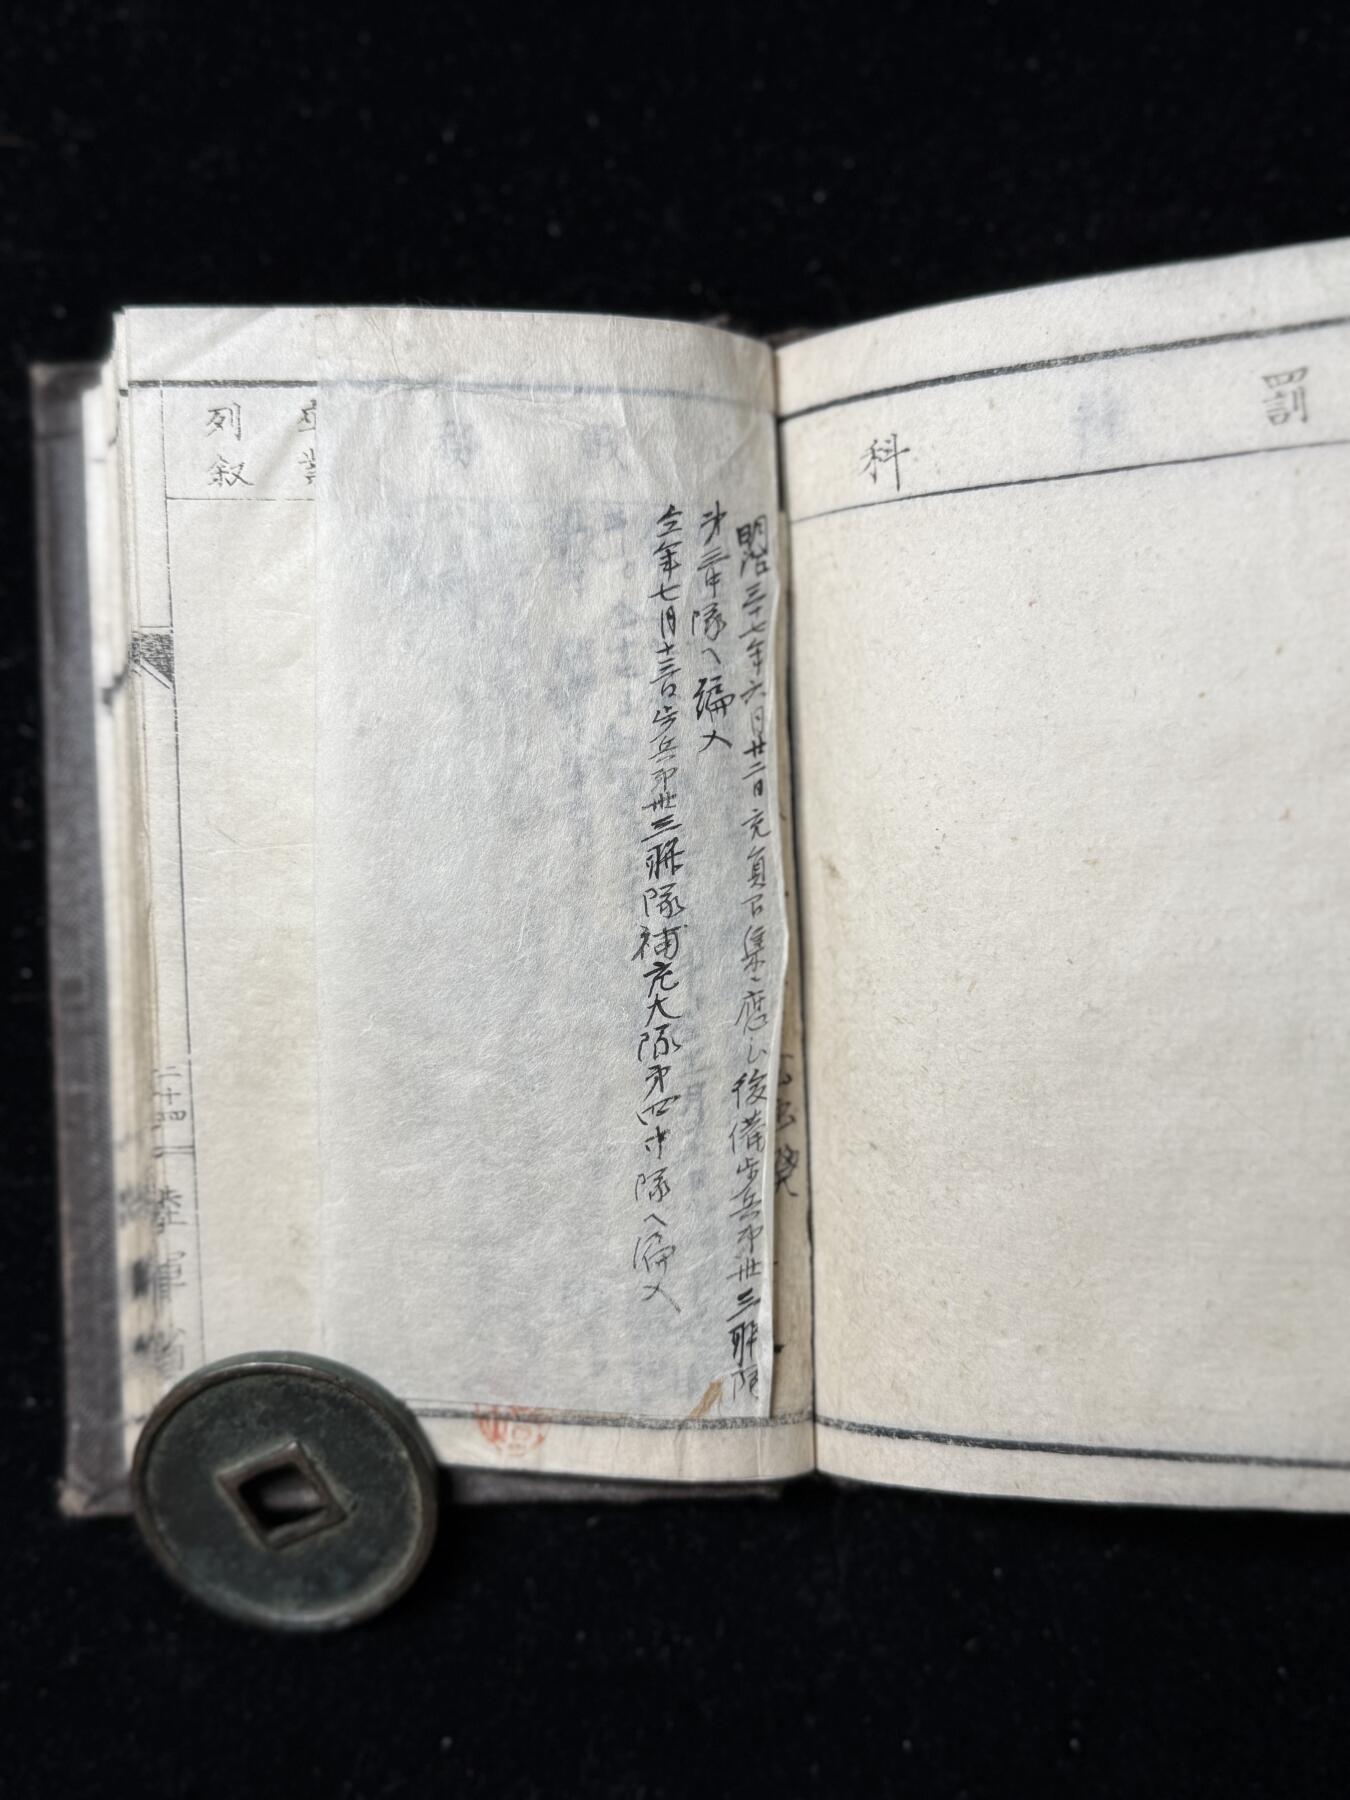 罰
科
明治三十七年六月廿二日充員召集ニ應シ後備歩兵第卅三聯隊
第三中隊ヘ編入
仝年七月十三日歩兵第卅三聯隊補充大隊第四中隊ヘ編入
列叙
二十四
陸軍省